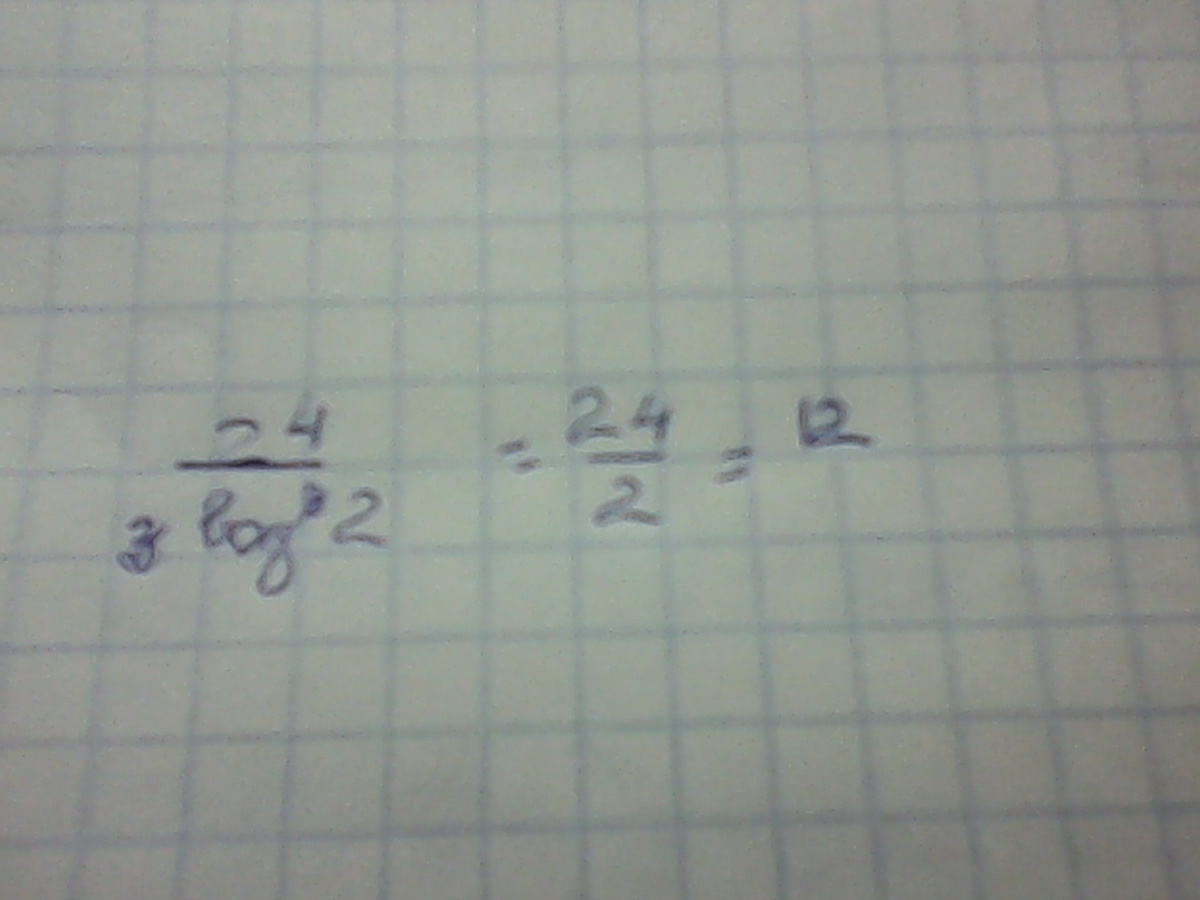 24 / 3 log³ 2 = 24 / 2 = 12